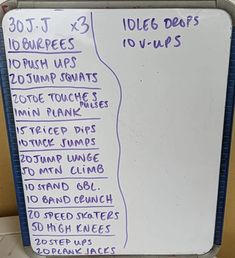 30 J.J x3
10 BURPEES
10 PUSH UPS
20 JUMP SQUATS
20 TOE TOUCHES
1 MIN PLANK PULSES
15 TRICEP DIPS
10 TUCK JUMPS
20 JUMP LUNGE
50 MTN CLIMB
10 STAND OBL.
10 BAND CRUNCH
20 SPEED SKATERS
50 HIGH KNEES
20 STEP UPS
20 PLANK JACKS
10 LEG DROPS
10 V-UPS